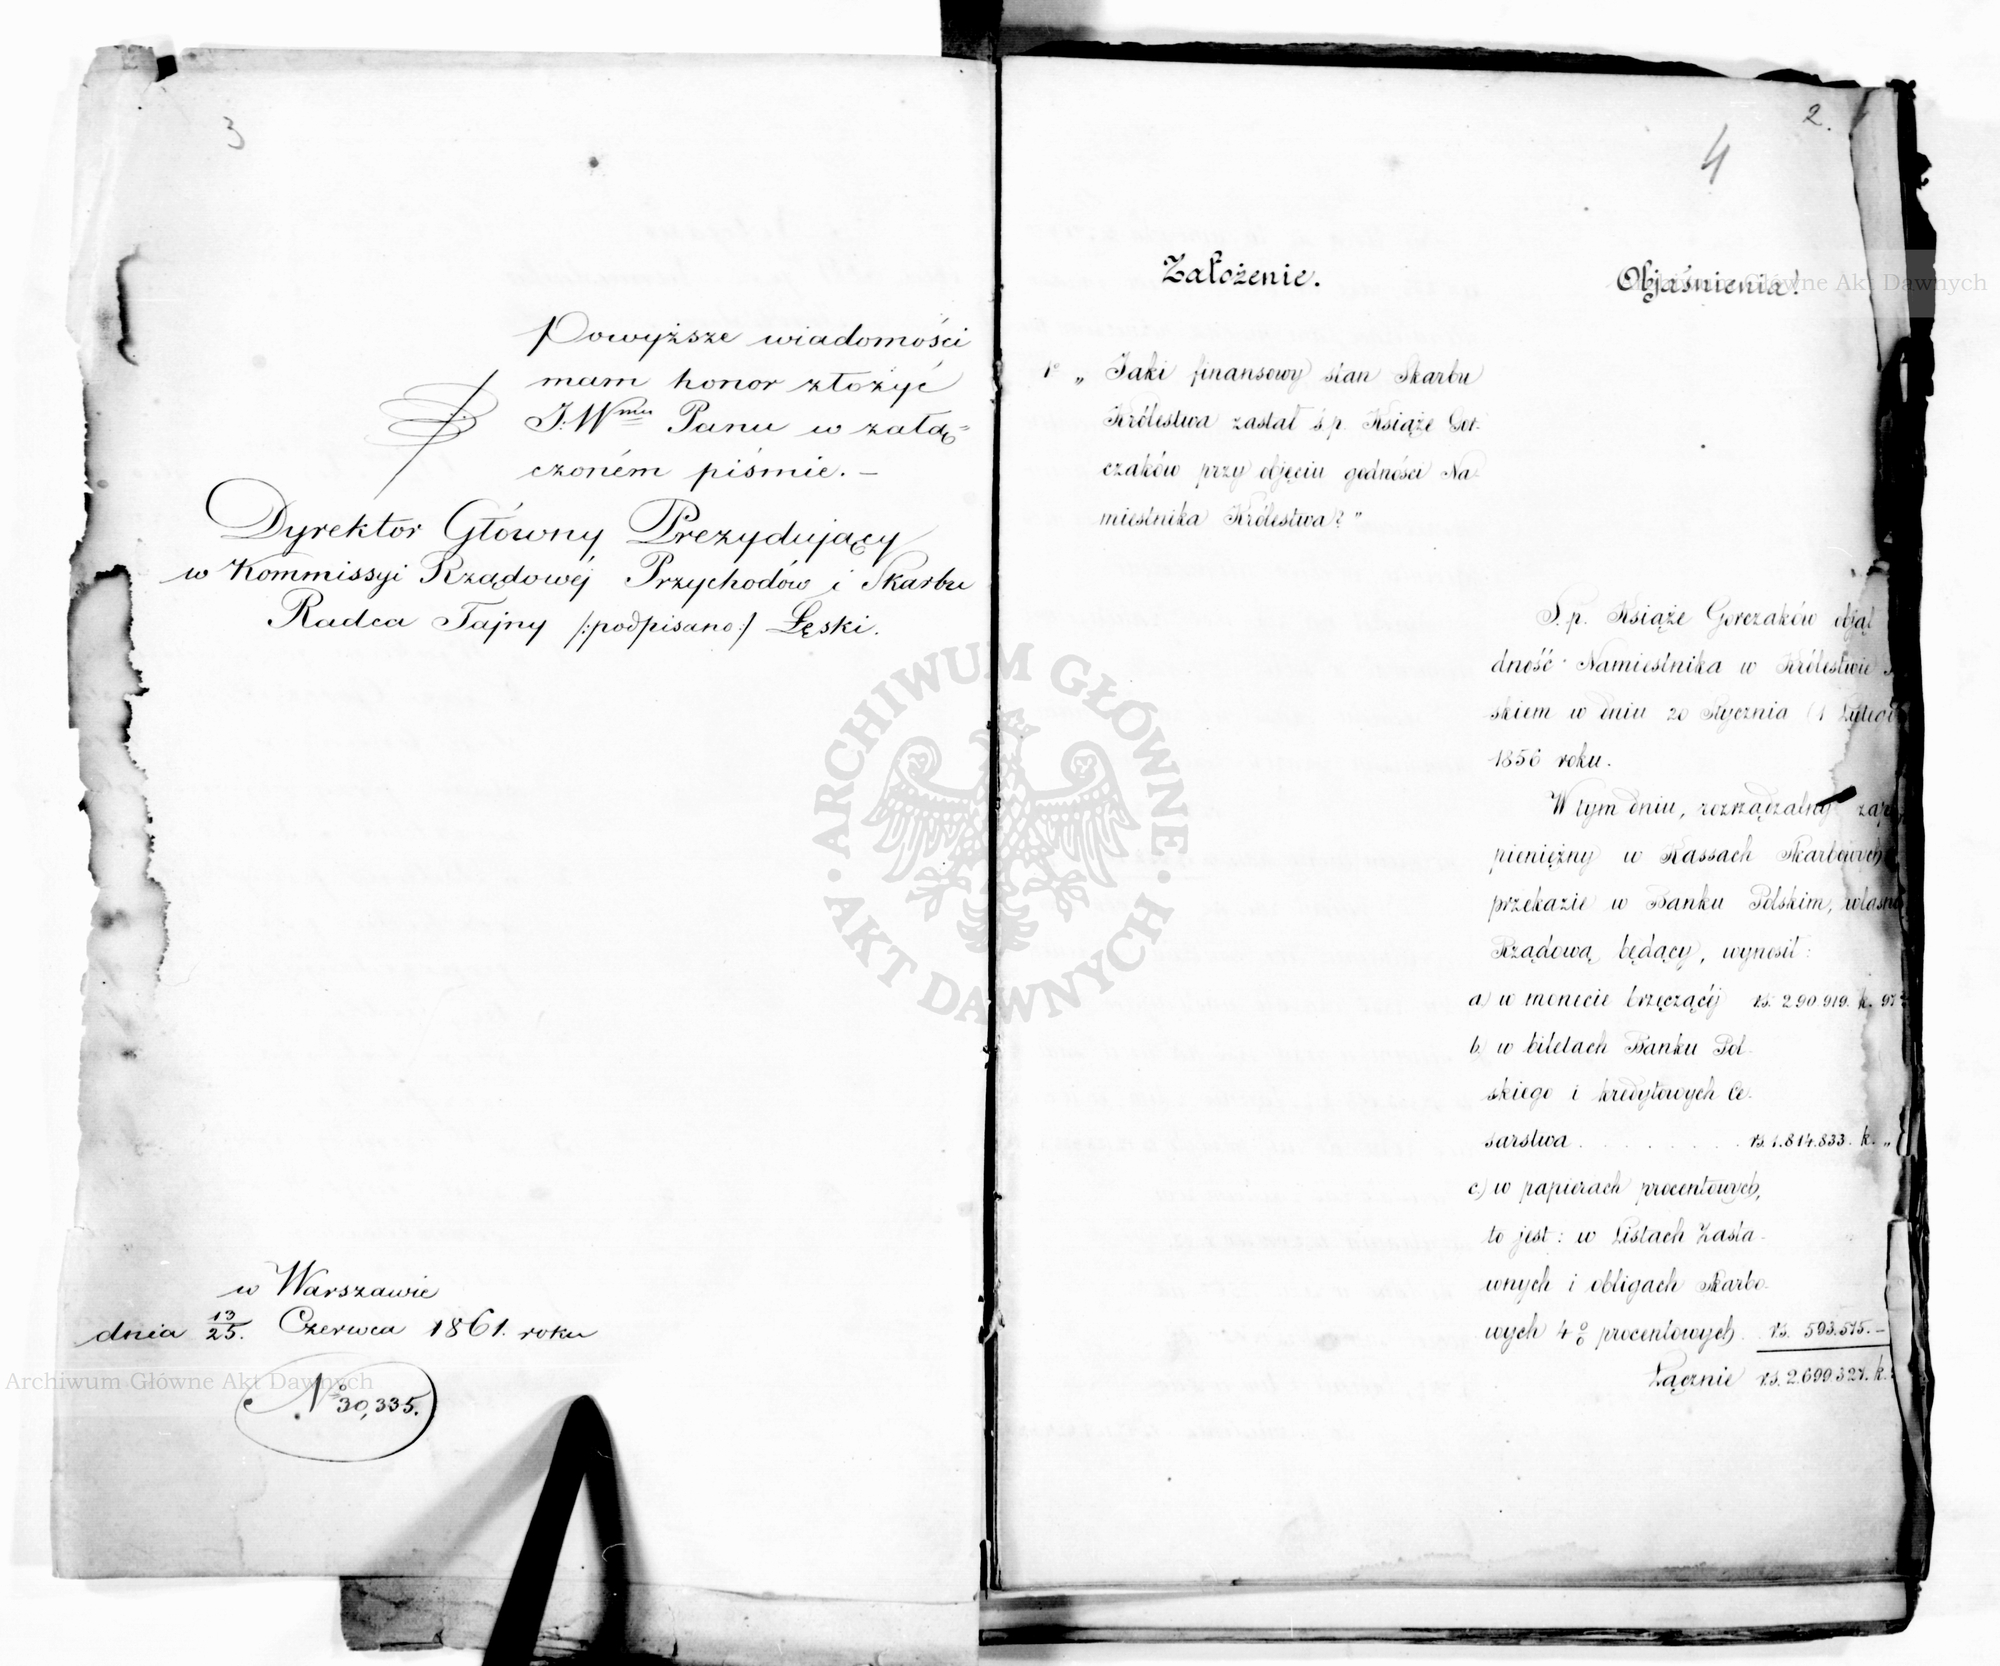 3
Powyższe wiadomości
mam honor złożyć
J:Wmu Panu w załą-
czoném piśmie. —
Dyrektor Główny Prezydujący
w Kommissyi Rządowéj Przychodów i Skarbu
Radca Tajny /:podpisano:/ Łęski.
w Warszawie
dnia 13/25. Czerwca 1861. roku
Archiwum Główne Akt Dawnych
No 30,335.
ARCHIWUM GŁÓWNE
AKT DAWNYCH
2.
4
Założenie.
Objaśnienia.
Archiwum Główne Akt Dawnych
1o „Jaki finansowy stan Skarbu
Królestwa zastał ś.p. Książe Gor-
czaków przy objęciu godności Na-
miestnika Królestwa?"
Ś.p. Książe Gorczaków objął
dność Namiestnika w Królestwie
skiem w dniu 20 Stycznia (1 Lutego
1856 roku.
W tym dniu, rozrządzalny zap
pieniężny w Kassach Skarbowych
przekazie w Banku Polskim, własno
Rządową będący, wynosił:
a) w monecie brzęczącéj rs. 290.919. k. 97
b) w biletach Banku Pol-
skiego i kredytowych Ce-
sarstwa . . . . . . . rs. 1.814.833. k. „
c.) w papierach procentowych,
to jest: w Listach Zasta-
wnych i obligach Skarbo-
wych 4% procentowych. rs. 593.575. —
Łącznie rs. 2.699.327. k.